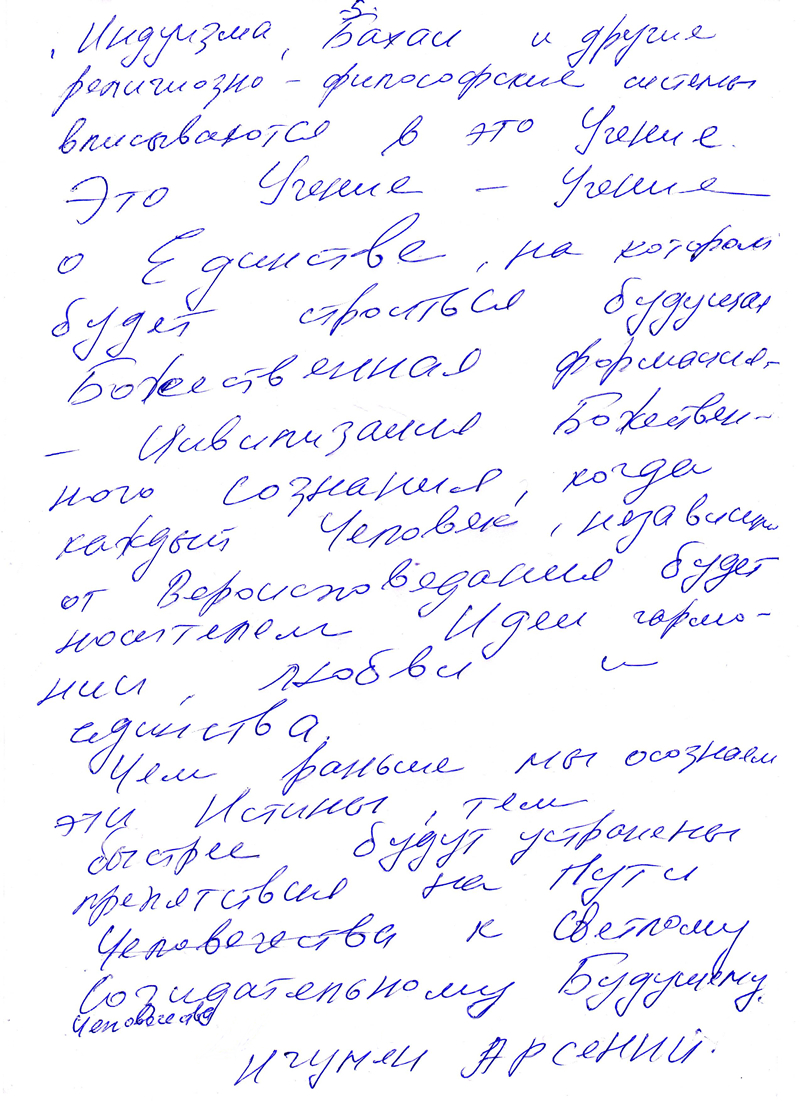 -5-
, Индуизма, Бахаи и другие
религиозно - философские системы
вписываются в это Учение.
Это Учение - Учение
о Единстве, на котором
будет строиться будущая
Божественная формация-
- Цивилизация Божествен-
ного сознания, когда
каждый Человек, независимо
от Вероисповедания будет
носителем Идеи гармо-
нии, любви и
единства.
Чем раньше мы осознаем
эти Истины, тем
быстрее будут устранены
препятствия на Пути
Человечества к Светлому
Созидательному Будущему.
Человечества
Игумен Арсений.